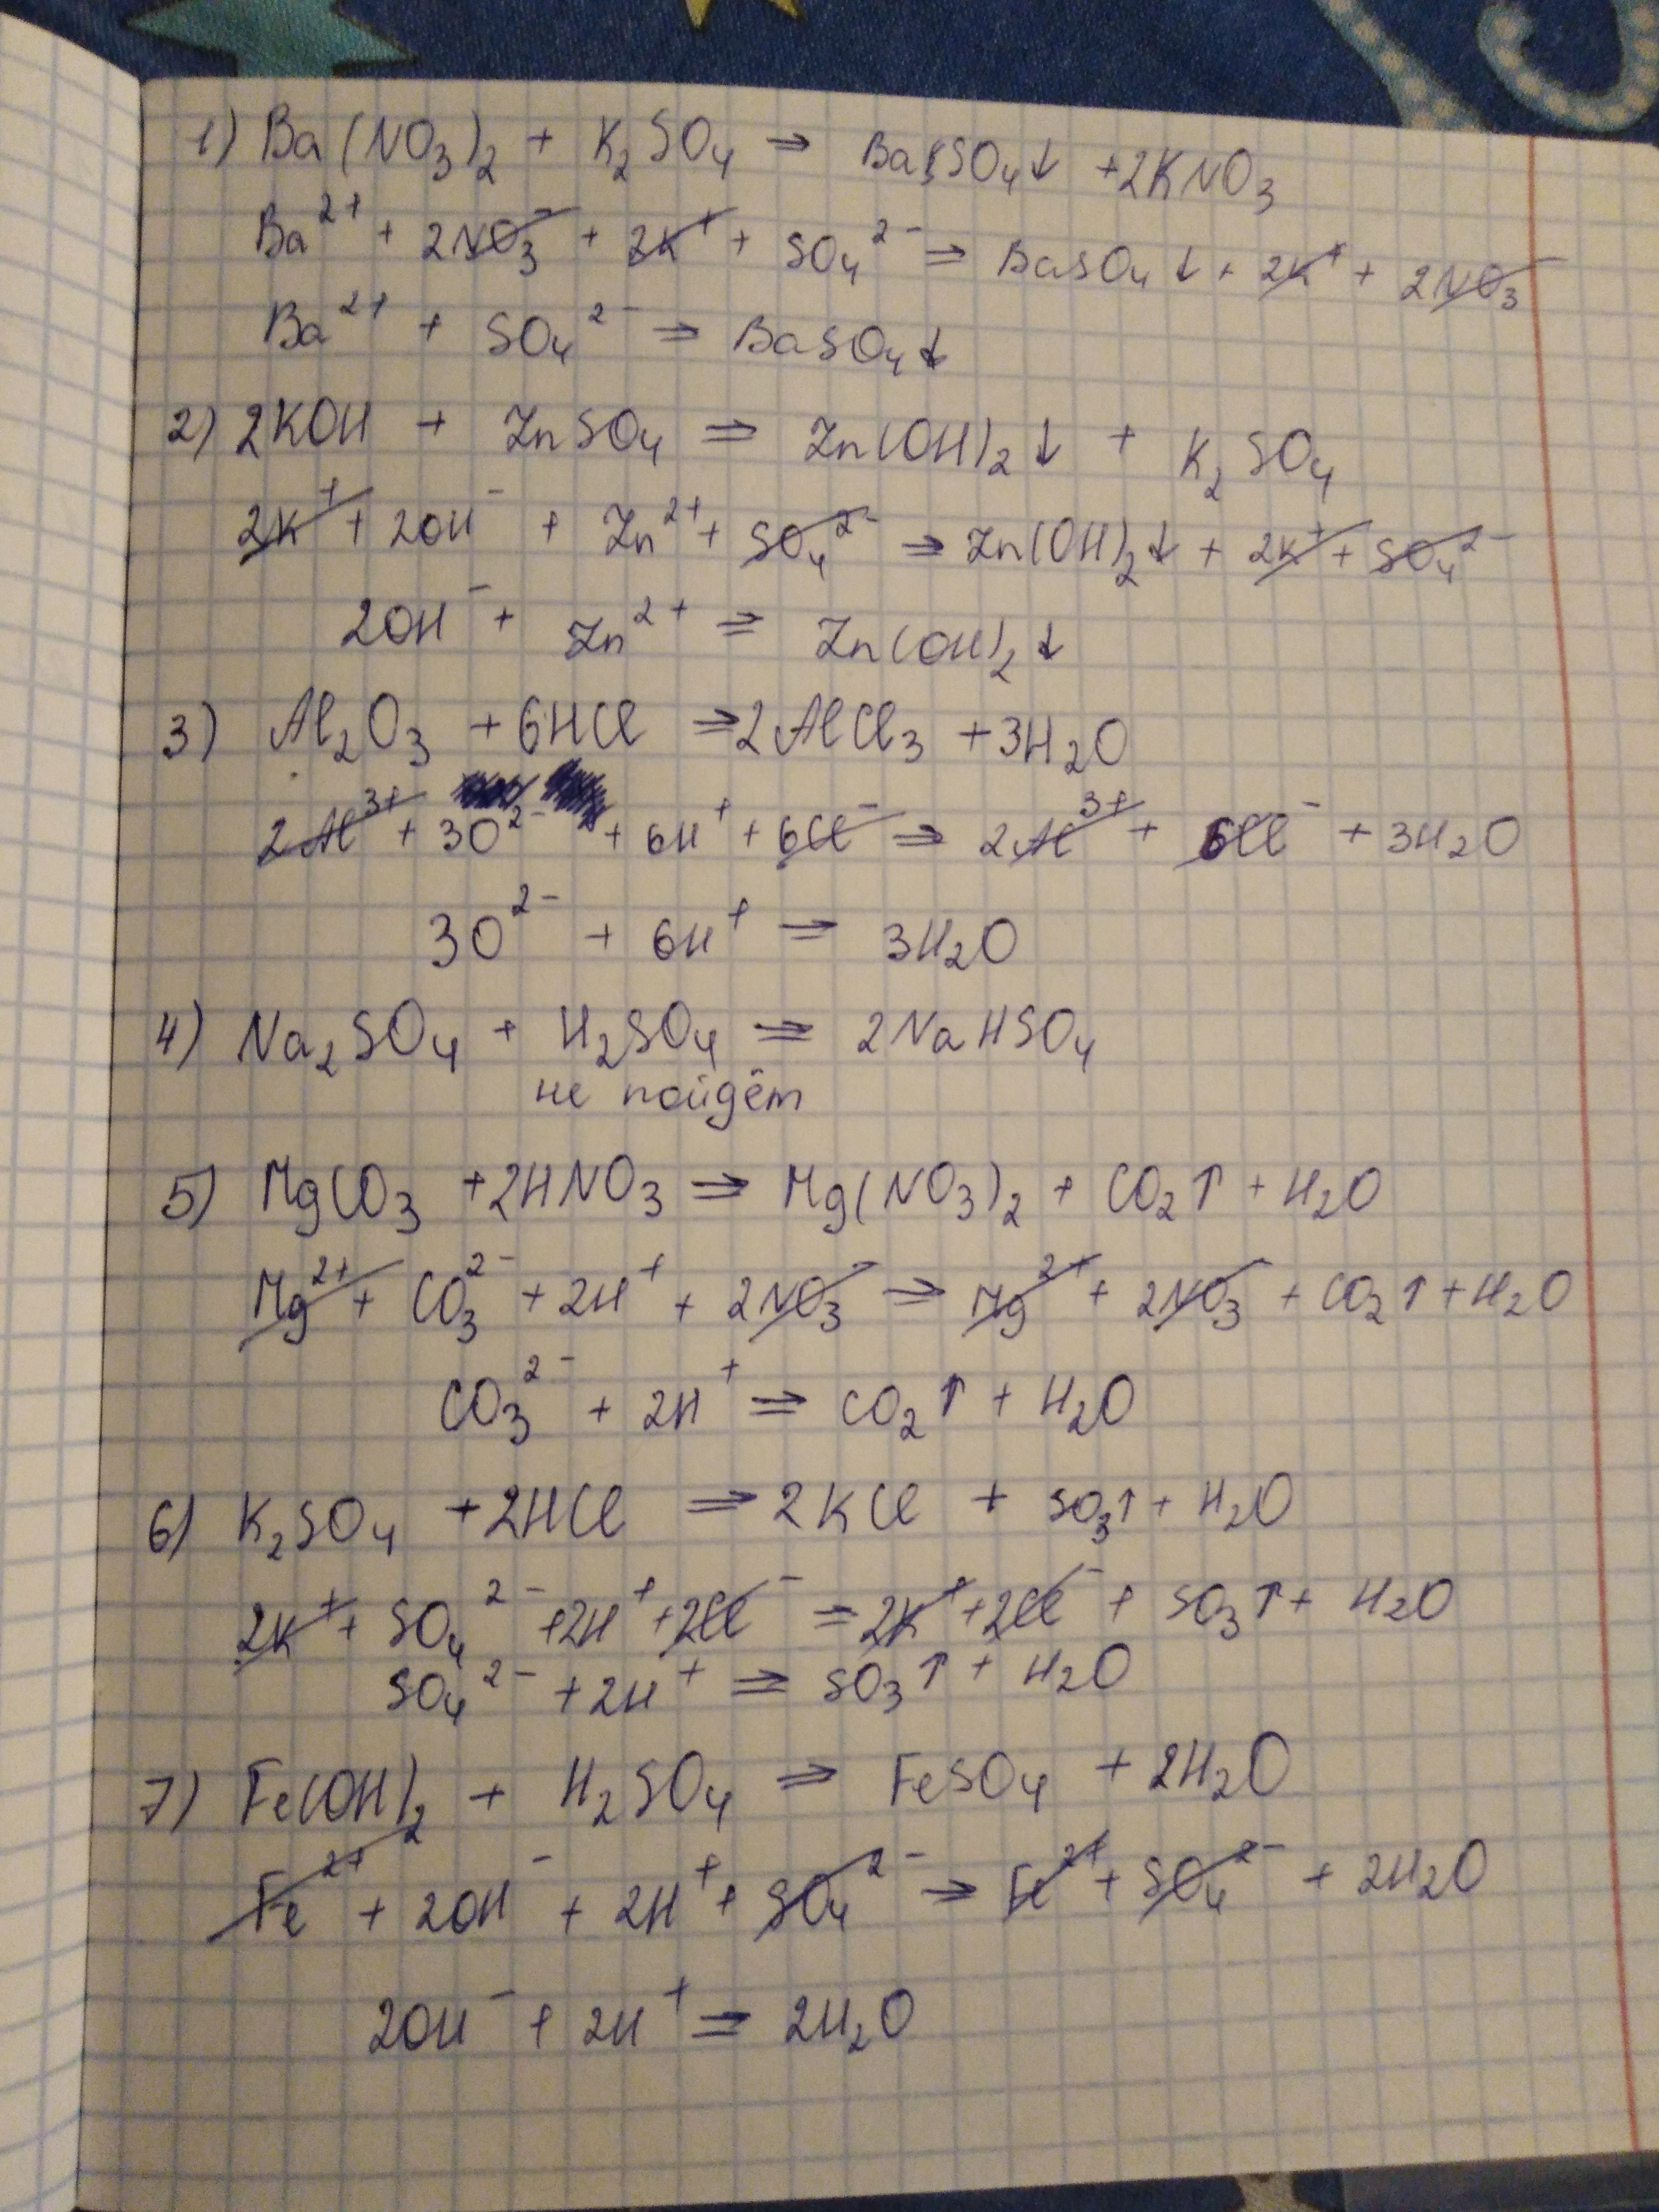 1) Ba(NO₃)₂ + K₂SO₄ ⇒ BaSO₄↓ +2KNO₃
Ba²⁺ + 2NO₃⁻ + 2K⁺ + SO₄²⁻ ⇒ BaSO₄↓ + 2K⁺ + 2NO₃⁻
Ba²⁺ + SO₄²⁻ ⇒ BaSO₄↓
2) 2KOH + ZnSO₄ ⇒ Zn(OH)₂↓ + K₂SO₄
2K⁺ + 2OH⁻ + Zn²⁺ + SO₄²⁻ ⇒ Zn(OH)₂↓ + 2K⁺ + SO₄²⁻
2OH⁻ + Zn²⁺ ⇒ Zn(OH)₂↓
3) Al₂O₃ +6HCl ⇒ 2AlCl₃ +3H₂O
2Al³⁺ + 3O²⁻ + 6H⁺ + 6Cl⁻ ⇒ 2Al³⁺ + 6Cl⁻ + 3H₂O
3O²⁻ + 6H⁺ ⇒ 3H₂O
4) Na₂SO₄ + H₂SO₄ ⇒ 2NaHSO₄
не пойдёт
5) MgCO₃ +2HNO₃ ⇒ Mg(NO₃)₂ + CO₂↑ + H₂O
Mg²⁺ + CO₃²⁻ + 2H⁺ + 2NO₃⁻ ⇒ Mg²⁺ + 2NO₃ + CO₂↑ + H₂O
CO₃²⁻ + 2H⁺ ⇒ CO₂↑ + H₂O
6) K₂SO₄ +2HCl ⇒ 2KCl + SO₃↑ + H₂O
2K⁺ + SO₄²⁻ +2H⁺ +2Cl⁻ = 2K⁺ +2Cl⁻ + SO₃↑ + H₂O
SO₄²⁻ +2H⁺ ⇒ SO₃↑ + H₂O
7) Fe(OH)₂ + H₂SO₄ ⇒ FeSO₄ + 2H₂O
Fe²⁺ + 2OH⁻ + 2H⁺ + SO₄²⁻ ⇒ Fe²⁺ + SO₄²⁻ + 2H₂O
2OH⁻ + 2H⁺ ⇒ 2H₂O